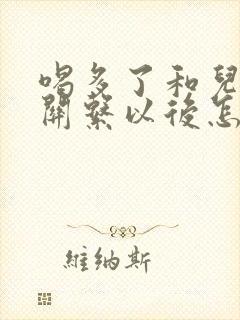 喝多了和兒
關繫以後怎
維納斯